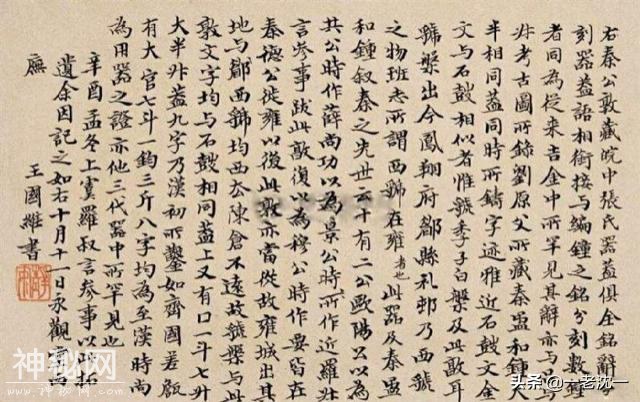 右秦公敦藏皖中張氏器蓋俱全銘辭分
刻器蓋語相銜接與編鐘之銘分刻數鐘
者同為從來吉金中所罕見其辭亦与
考古圖所錄劉原父所藏秦盄和鐘大
半相同蓋同時所鑄字迹雅近石鼓文金
文与石鼓相似者惟虢季子白盤及此敦耳
虢盤出今鳳翔府郿縣礼邨乃西虢
之物班志所謂西虢在雍者也此器及秦盄
和鐘叙秦之先世云十有二公歐陽公以為
共公時作薛尚功以為景公時所作近羅叔
言參事跋此敦復以為穆公時作要皆在
秦德公徙雍以後此敦亦當從故雍城出其
地与郿西虢均西去陳倉不遠故虢盤与此
敦文字均与石鼓相同蓋上又有口一斗七升
大半升蓋九字乃漢初所鑿如齊國差
有大官七斗一鈞三斤八字均為至漢時尚
為用器之證亦他三代器中所罕見也
辛酉孟冬上虞羅叔言參事以拓
遺余因記之如右十月十一日永觀
廡 王國維書
神秘网
头条 @一老沈一